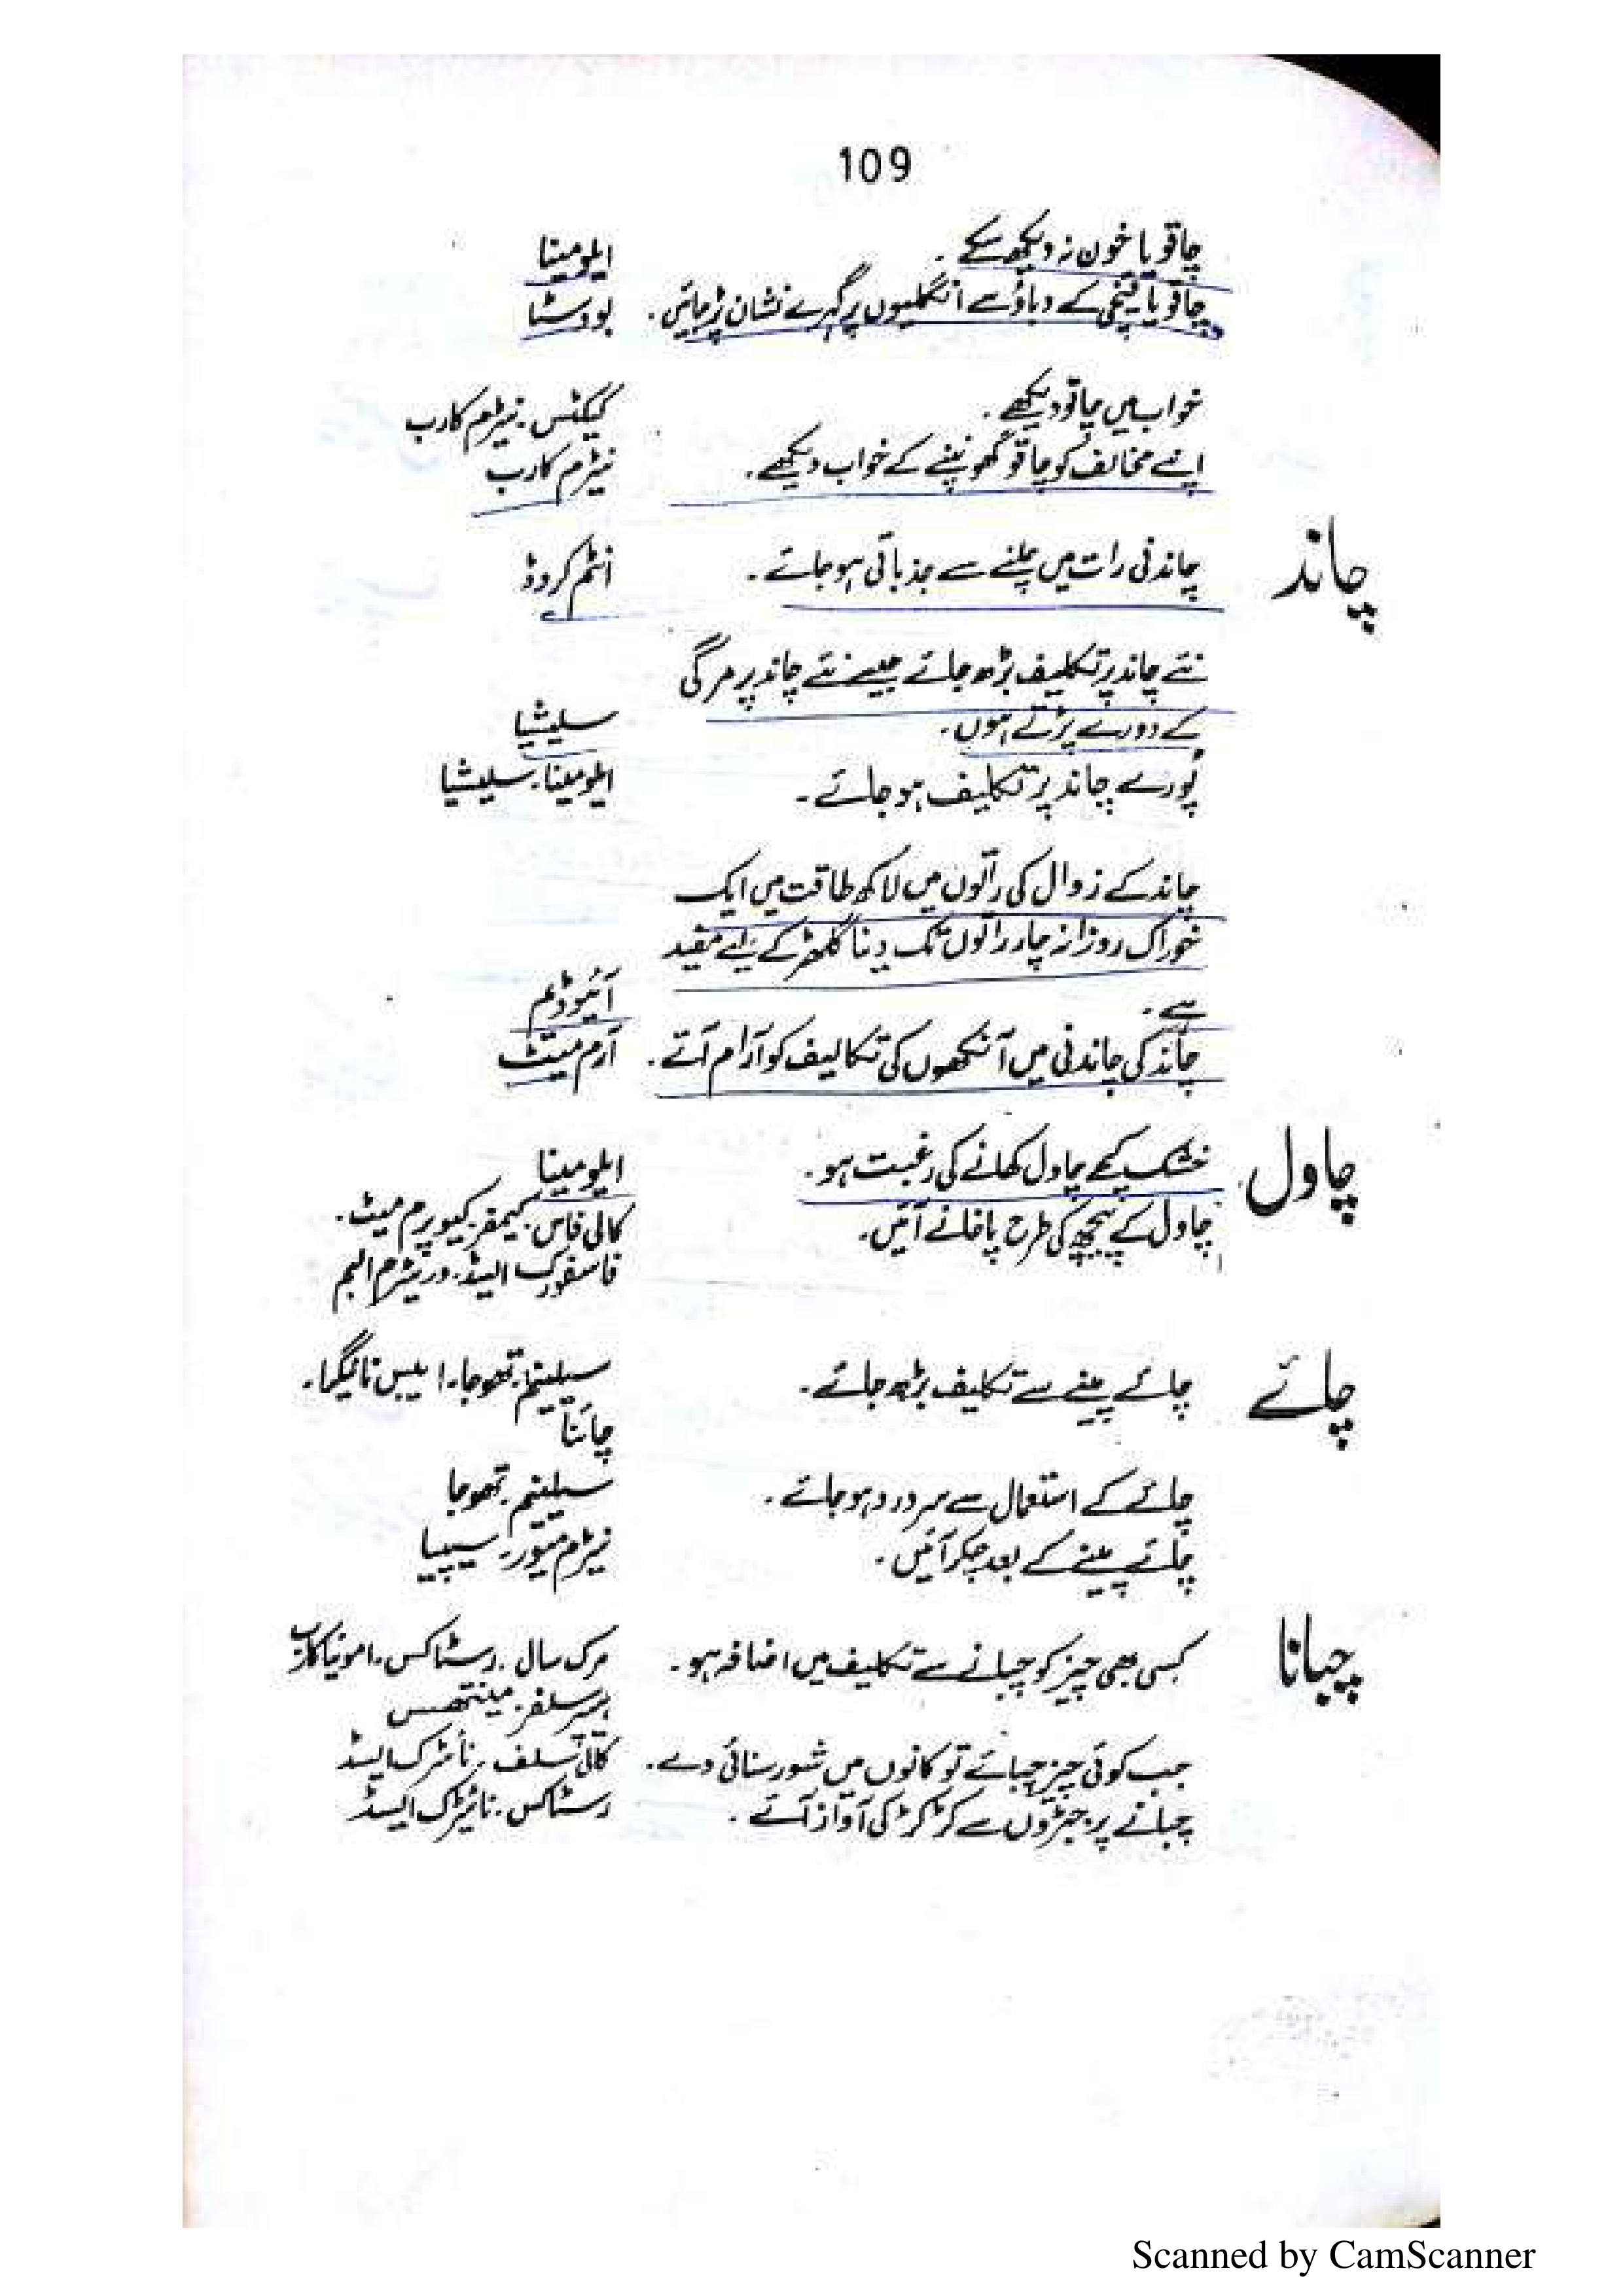 109
چاقو یا خون نہ دیکھ سکے۔ ایلومینا
چاقو یا قینچی کے دباؤ سے انگلیوں پر گہرے نشان پڑ جائیں۔ بووسٹا
خواب میں چاقو دیکھے۔ کیکٹس۔ نیٹرم کارب
اپنے مخالف کو چاقو گھونپنے کے خواب دیکھے۔ نیٹرم کارب
چاند چاندنی رات میں چلنے سے جذباتی ہو جائے۔ انٹم کروڈ
نئے چاند پر تکلیف بڑھ جائے جیسے نئے چاند پر مرگی
کے دورے پڑتے ہوں۔ سلیشیا
پورے چاند پر تکلیف ہو جائے۔ ایلومینا۔ سلیشیا
چاند کے زوال کی راتوں میں لاکھ طاقت میں ایک
خوراک روزانہ چار راتوں تک دینا گلھڑ کے لئے مفید
ہے۔ آئیوڈیم
چاند کی چاندنی میں آنکھوں کی تکالیف کو آرام آئے۔ آرم میٹ
چاول خشک کچے چاول کھانے کی رغبت ہو۔ ایلومینا
چاول کے پیچھ کی طرح پاخانے آئیں۔ کالی فاس۔ کیمفر۔ کیوپرم میٹ۔
فاسفورک ایسڈ۔ وریٹرم البم
چائے چائے پینے سے تکلیف بڑھ جائے۔ سیلینیم۔ تھوجا۔ ابیس نائیگرا۔
چائنا
چائے کے استعمال سے سر درد ہو جائے۔ سیلینیم۔ تھوجا
چائے پینے کے بعد چکر آئیں۔ نیٹرم میور۔ سیپیا
چبانا کسی بھی چیز کو چبانے سے تکلیف میں اضافہ ہو۔ مرک سال۔ رسٹاکس۔ امونیا کارب
ہیپر سلفر۔ مینتھس
جب کوئی چیز چبائے تو کانوں میں شور سنائی دے۔ کالی سلف۔ نائٹرک ایسڈ
چبانے پر جبڑوں سے کڑ کڑ کی آواز آئے۔ رسٹاکس۔ نائیٹرک ایسڈ
Scanned by CamScanner